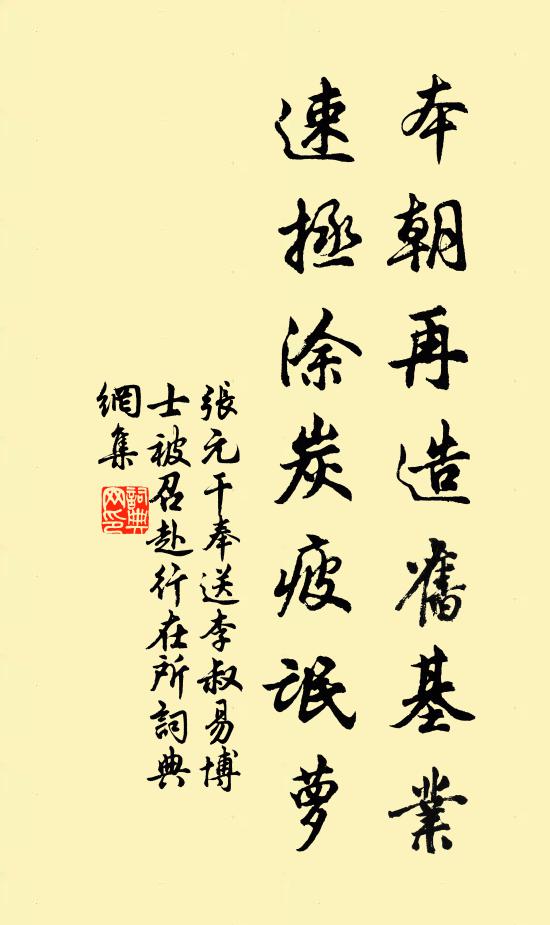 本朝再造舊基業
速拯涂炭疲氓夢
張元干奉送李叔易博
士被召赴行在所詞典
網集
詞典網印